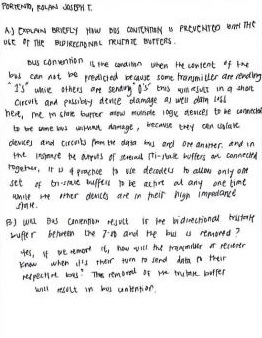 PORTENTO, ROLAN JOSEPH T.
A.) EXPLAIN BRIEFLY HOW BUS CONTENTION IS PREVENTED WITH THE
USE OF THE BIDIRECTIONAL TRISTATE BUFFERS.
BUS CONTENTION IS the condition when the content of the
bus can not be predicted because some transmitter are sending
"1's" while others are sending "0's" this will result in a short
circuit and possibly device damage as well data loss
here, the tri state buffer allow multiple logic devices to be connected
to the same bus without damage, because they can isolate
devices and circuits from the data bus and one another. and in
the instance the outputs of several tri-state buffers are connected
together, it is a practice to use decoders to allow only one
set of tri-state buffers to be active at any one time
while the other devices are in their high impedance
state.
B.) WILL BUS CONTENTION RESULT IF the bidirectional tristate
buffer between the and the bus is removed?
Yes, if we remove it, how will the transmitter or receiver
know when it's their turn to send data to their
respective bus? The removal of the tristate buffer
will result in bus contention.